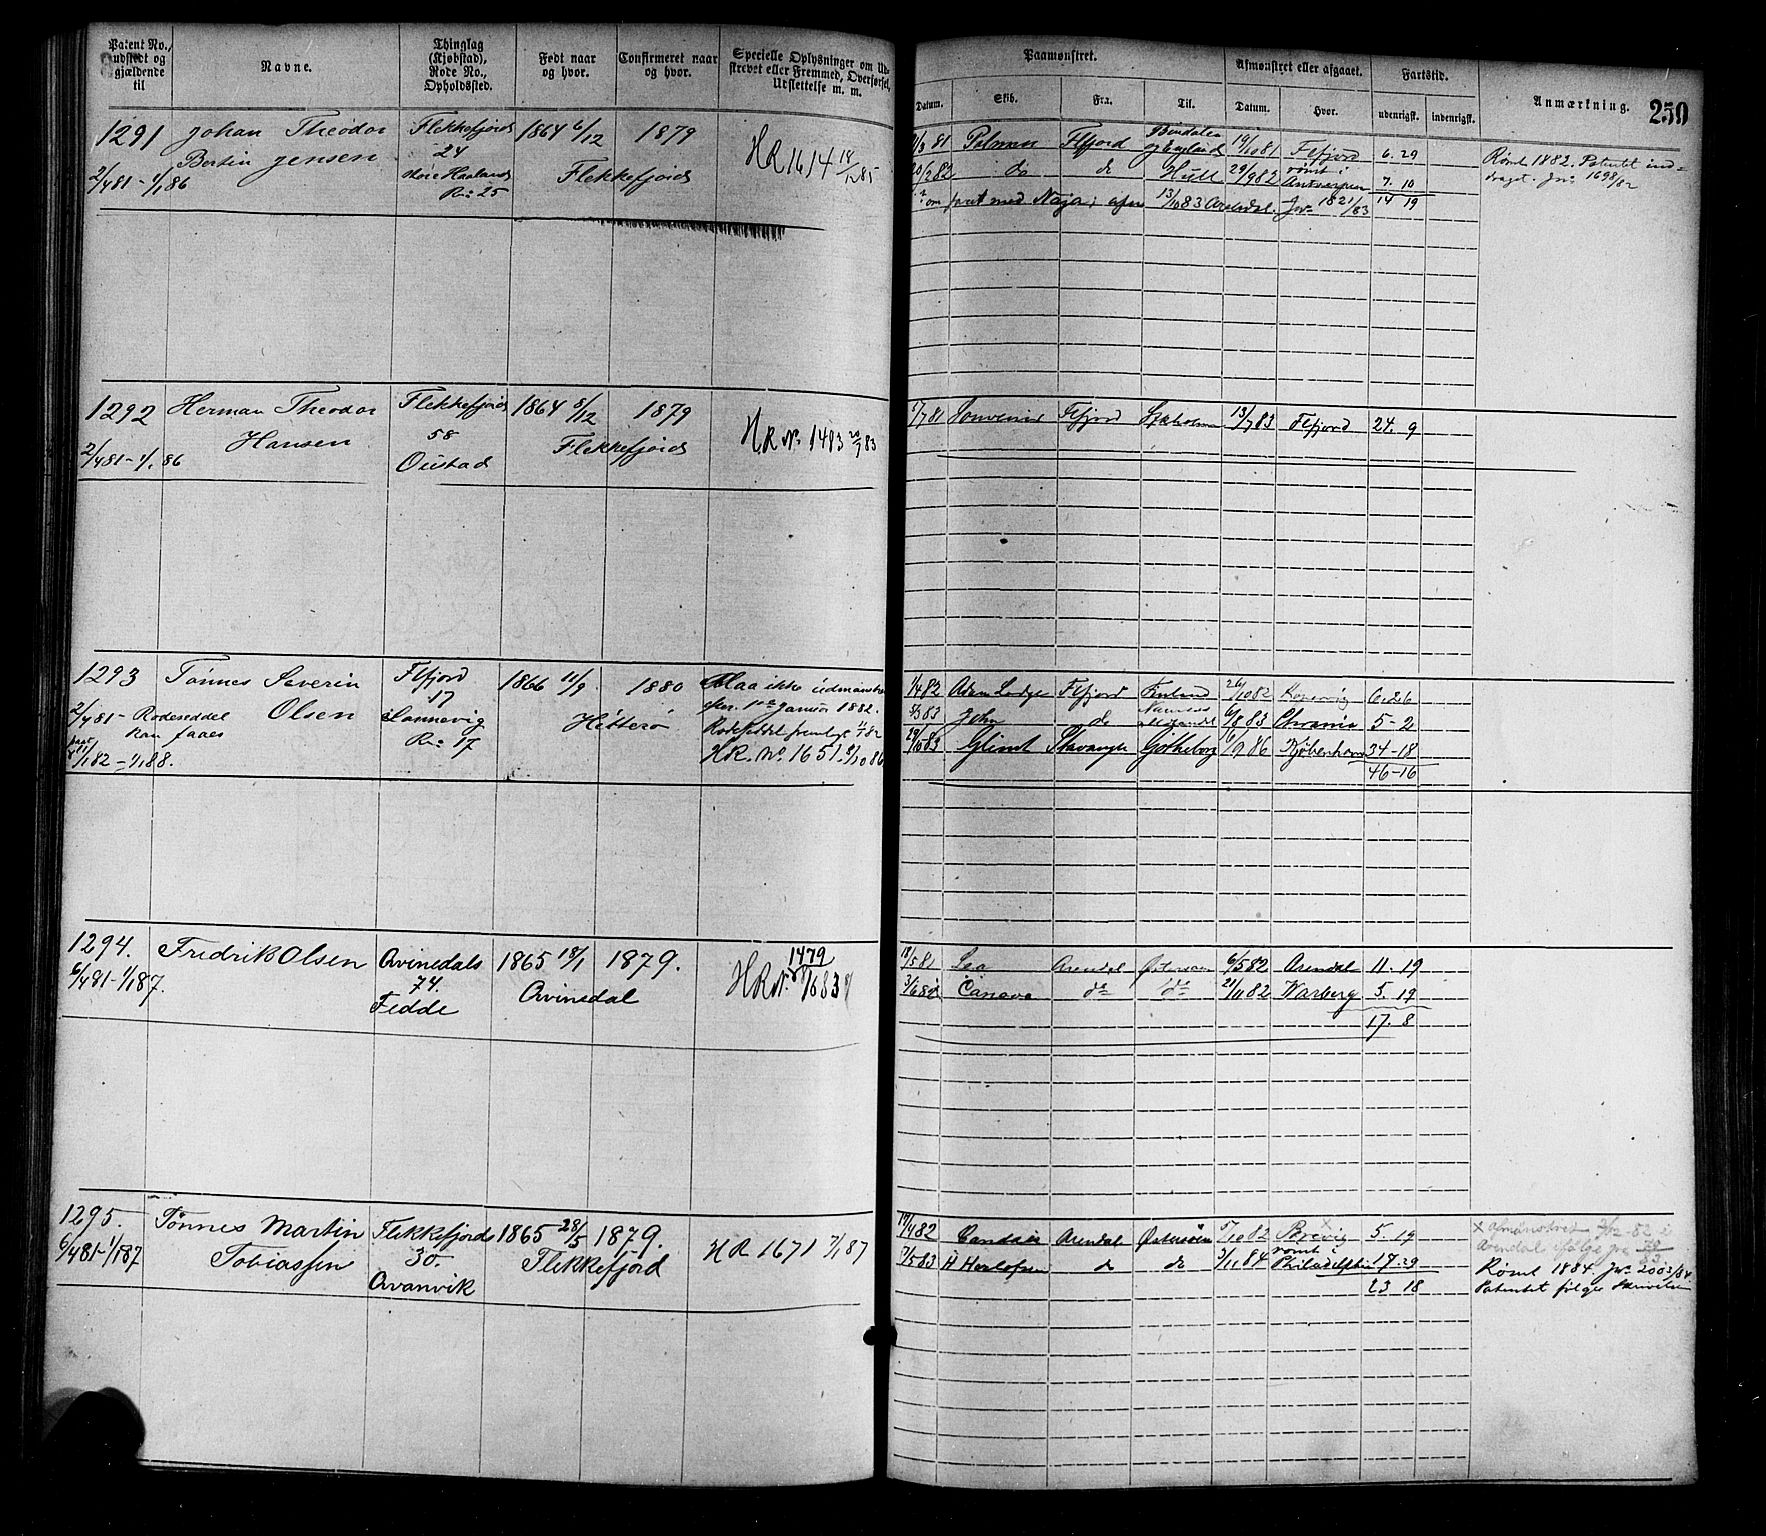 Patent No.,
udstedt og
gjældende
til
Navne.
Thinglag
(Kjøbstad),
Rode No.,
Opholdssted.
Født naar
og hvor.
Confirmeret naar
og hvor.
Specielle Oplysninger om Ud-
skrevet eller Fremmed, Overførsel,
Udslettelse m. m.
Paamønstret.
Datum.
Skib.
Fra.
Til.
Afmønstret eller afgaaet.
Datum.
Hvor.
Fartstid.
udenrigsk.
indenrigsk.
Anmærkning.
250
1291
2/4 81 - 1/1 86
Johan Theodor
Bertin Jensen
Flekkefjords
24
Store Haaland
No 25
1864 6/12
1879
Flekkefjords
HR 1614 18/12 85
81 Palmen Flfjord
og England 19/10 81 Flfjord 6. 29
20/2 82 do do Hull 29/9 82 rømt i
Antwerpen 7. 10
om faret med Naja; afm 13/10 83 Arendal. Jno 1821/83 14 19
Rømt 1882. Patentet ind=
draget. Jno 1698/82
1292
2/4 81 - 1/1 86
Herman Theodor
Hansen
Flekkefjords
58
Oustad
1864 8/12
1879
Flekkefjords
HR No 1483 20/7 83
1/7 81 Souvenir Flfjord 13/7 83 Flfjord 24. 9
1293
2/4 81 - Rodeseddel
kan faaes
11/1 82 - 1/1 88.
Tønnes Severin
Olsen
Flfjord
17
Sannevig
No 17
1866 11/9
1880
Hitterø
Maa ikke udmønstres
efter 1ste Januar 1882.
Rodeseddel fremlagt 11/1 82
HR. No. 1651. 9/10 86
1/4 82 Flfjord Finland 26/10 82 6. 26
5/3 83 John do 6/8 83 Chrania 5 - 2
29/10 83 Glimt Stavanger Gotheborg 6/9 86 Kjøbenhavn 34 - 18
46 - 16
1294.
6/4 81 - 1/1 87.
Fredrik Olsen
Qvinesdals
74.
Fedde
1865 18/1
1879.
Qvinesdal
1479
HR No
18/5 81 Arendal 6/5 82 Arendal 11. 19
3/6 82 Canova do do 21/11 82 Warberg 5. 19
17. 8
1295.
6/4 81 - 1/1 87
Tønnes Martin
Tobiassen
Flekkefjords
30.
Qvanvik
1865 28/5
1879.
Flekkefjord
HR 1671 7/1 87
19/4 82 Arendal Østersøen 5/10 82 Brevig 5. 19
7/5 83 A Herlofsen do do 3/11 84 rømt i
Philadelphia 17. 29
23 18
x afmønstret 82 i
Arendal ifølge
Rømt 1884. Jno 2003/84.
Patentet følger Skrivelse